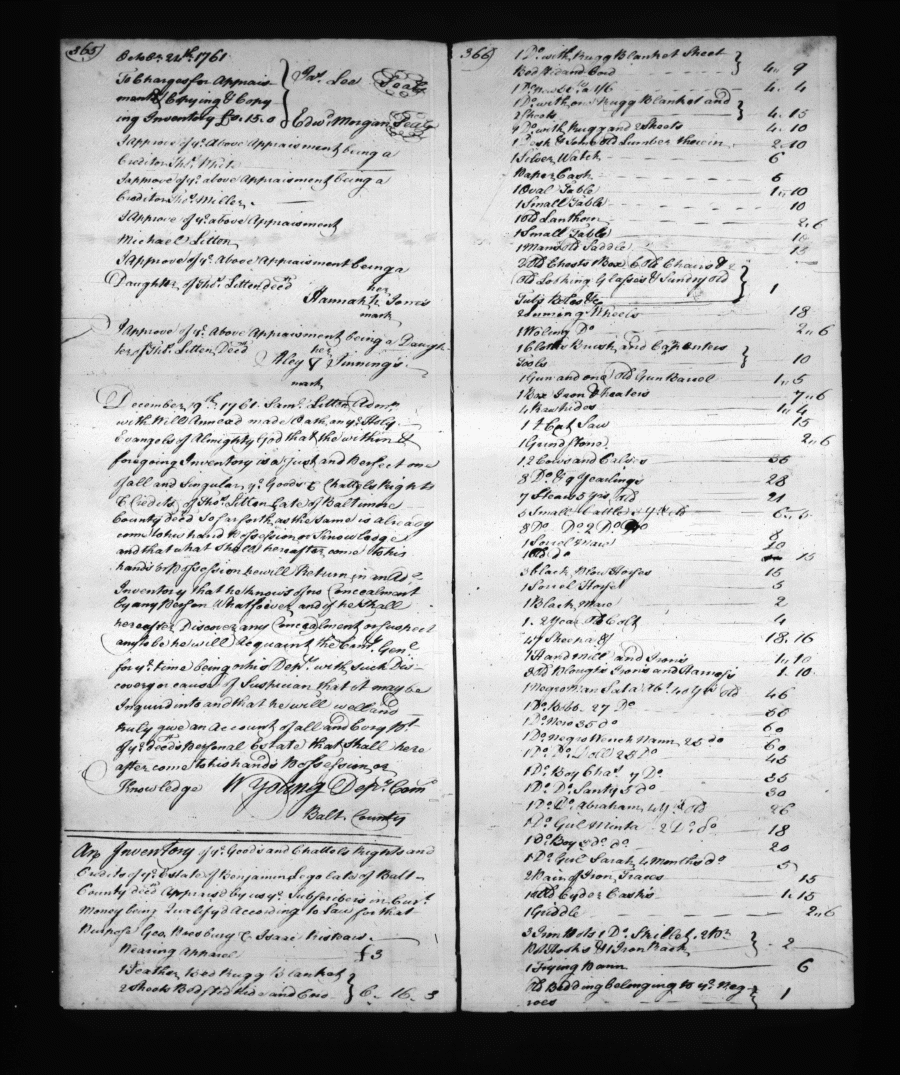 365
October 24th. 1761
To Charges for Apprais-
ment & Copying & Copy-
ing Inventory £0..15..0
Jas. Lee Seal
Edwd. Morgan Seal
I approve of ye. Above Appraisment being a
Creditor Thos. White
I approve of ye. above Appraisment being a
Creditor Thos. Miller.
I Approve of ye. above Appraisment
Michael Litton
I Approve of ye. Above Appraisment being a
Daughter of Thos. Litten Deced
her
Hannah Jones
mark
I Approve of ye. Above Appraisment being a Daugh-
ter of Thos. Litten Deced
her
Jinnings
mark
December 9th. 1761. Saml. Litton Admr.
with Will Annexed made Oath on ye. Holy
Evangels of Almighty God that the within &
foregoing Inventory is a Just and Perfect one
of all and Singular ye. Goods & Chattels Rights
& Credits of Thos. Litton Late of Baltimore
County Deced So far forth as the same is already
come to his hand Possession or Knowledge
and that what Shall hereafter come to his
hands or Possession he will Return in an Ad
Inventory that he knows of no Concealment
by any Person Whatsoever and if he Shall
hereafter Discover any Concealment or Suspect
any to be he will Acquaint the Comy. Genl.
for ye. time being or his Depy. with Such Dis-
covery or cause of Suspician that it may be
Inquired into and that he will well and
truly give an Account of all and Every Pt.
of ye. deceds Personal Estate that Shall here
after come to his hands Possession or
Knowledge W Young Depy. Com
Balt County
An Inventory of ye. Goods and Chattels Rights and
Credits of ye. Estate of Benjamin Lego Late of Balt-
County deced Appraised by us ye. Subscribers in Curt.
Money being Qualifyd According to Law for that
Purpose Geo. Presbury & Isaac
Wearing Apparel £3
1 Feather Bed Rugg Blanket
2 Sheets Bedsted Hide and Cord 6. 16. 3
366
1 Do. with Rugg Blanket Sheet
Bed Hide and Cord 4. 9
1 Do. 4. 4
1 Do. with one Rugg Blanket and
2 Sheets 4. 15
1 Do. with Rugg and 2 Sheets 4. 10
1 Desk & Some Old Lumber therein 2. 10
1 Silver Watch 6
Paper Cash 6
1 Oval Table 1.. 10
1 Small Table 10
1 Old Lanthorn 2..6
1 Small Table
1 Mans Old Saddle 15
2 Old Chests 1 Box 6 Old Chairs & 2
Old Looking Glasses & Sundry Old
Tubs 1
2 Spinning Wheels 18
1 Woling Do 2..6
1 Cloths Brush and Carpenters
Tools 10
1 Gun and one Old Gun Barrel 1.. 5
1 Box Iron & heaters 7..6
4 Rawhides 1.. 4
1 X Cut Saw 15
1 Grindstone 2..6
12 Cows and Calves 36
8 Do. & 9 Yearlings 28
7 Steers 5 yrs old 21
5 Small Cattle
8 Do Do 2 Do 8
1 Sorrel Mare 10
1 Old do 15
3 black Plow Horses 15
1 Sorrel Horse 5
1 Black Mare 2
1. 2 Year Old Colt 4
47 Sheep a 8/ 18. 16
1 Hand Mill and Irons 1.. 10
3 Old Ploughs Irons and Harness 1. 10.
1 Negro Man 46
1 Do. Bobb. 27 Do 60
1 Do. Nero 35 do 60
1 Do. Negro Wench Nann 23 do 60
1 Do. Do. Doll 25 Do 45
1 Do. Boy Chas. 7 Do. 35
1 Do. Do. Santy 5 do 30
1 Do. Do. Abraham 4 yrs Old 26
1 Do. Girl Minta 2 Do. do 18
1 Do. Boy 20
1 Do. Girl Sarah 4 Months do 5
2 Pair of Iron Traces 15
Old Cyder Casks 1. 15
1 Griddle 2..6
3 Iron Pots 1 Do. Skillet, 2 Pr.
Pot Hooks & 1 Iron Rack 2
1 Frying Pann 6
Old Bedding belonging to ye. Neg-
roes 1